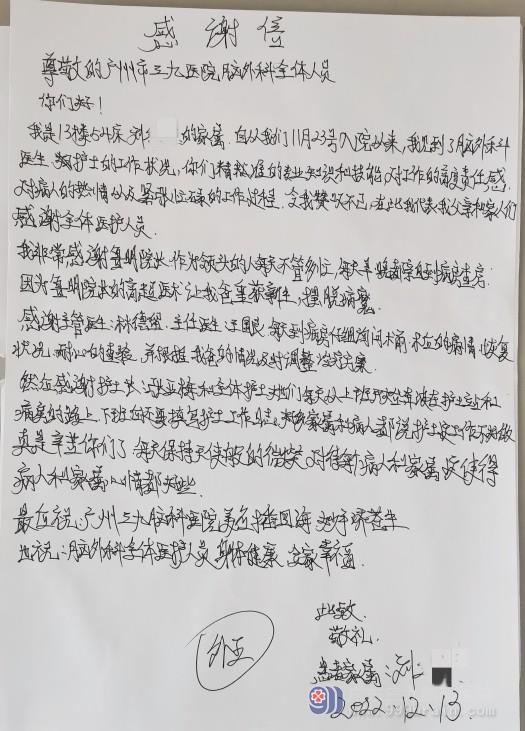 感谢信
尊敬的广州市三九医院脑外科全体人员
你们好！
我是13楼54床刘 的家属 自从我们11月23号入院以来，我见到了脑外科
医生 护士的工作状况，你们精 的专业知识和技能 对工作的高度责任感，
对病人的热情以及紧张忙碌的工作过程 令我赞叹不已，在此我代表我父亲和家人们
感谢全体医护人员
我非常感谢 明院长 作为领头的人每天不管多忙，每天早晚都亲自到病房查房
因为 明院长的高超医术让我爸重获新生，摆脱病魔
感谢主管医生：林德 主任医生 王 每天到病房仔细询问术前 术后的病情 恢复
状况 耐心的查验 并根据我爸的情况及时调整治疗方案
然后感谢护士长： 和全体护士她们每天从上班开始 在护士站和
病房的路上 下班后还要填写护士工作日志 家属和病人都说护士工作不好做
真是辛苦你们了 每天保持天使般的微笑 对待每个病人和家属 使得
病人和家属心情都
最后祝：广州三九脑科医院美名播四海 妙手济苍生
也祝：脑外科全体医护人员身体健康 全家幸福
此致
敬礼
外五
患者家属：刘
2022.12.13